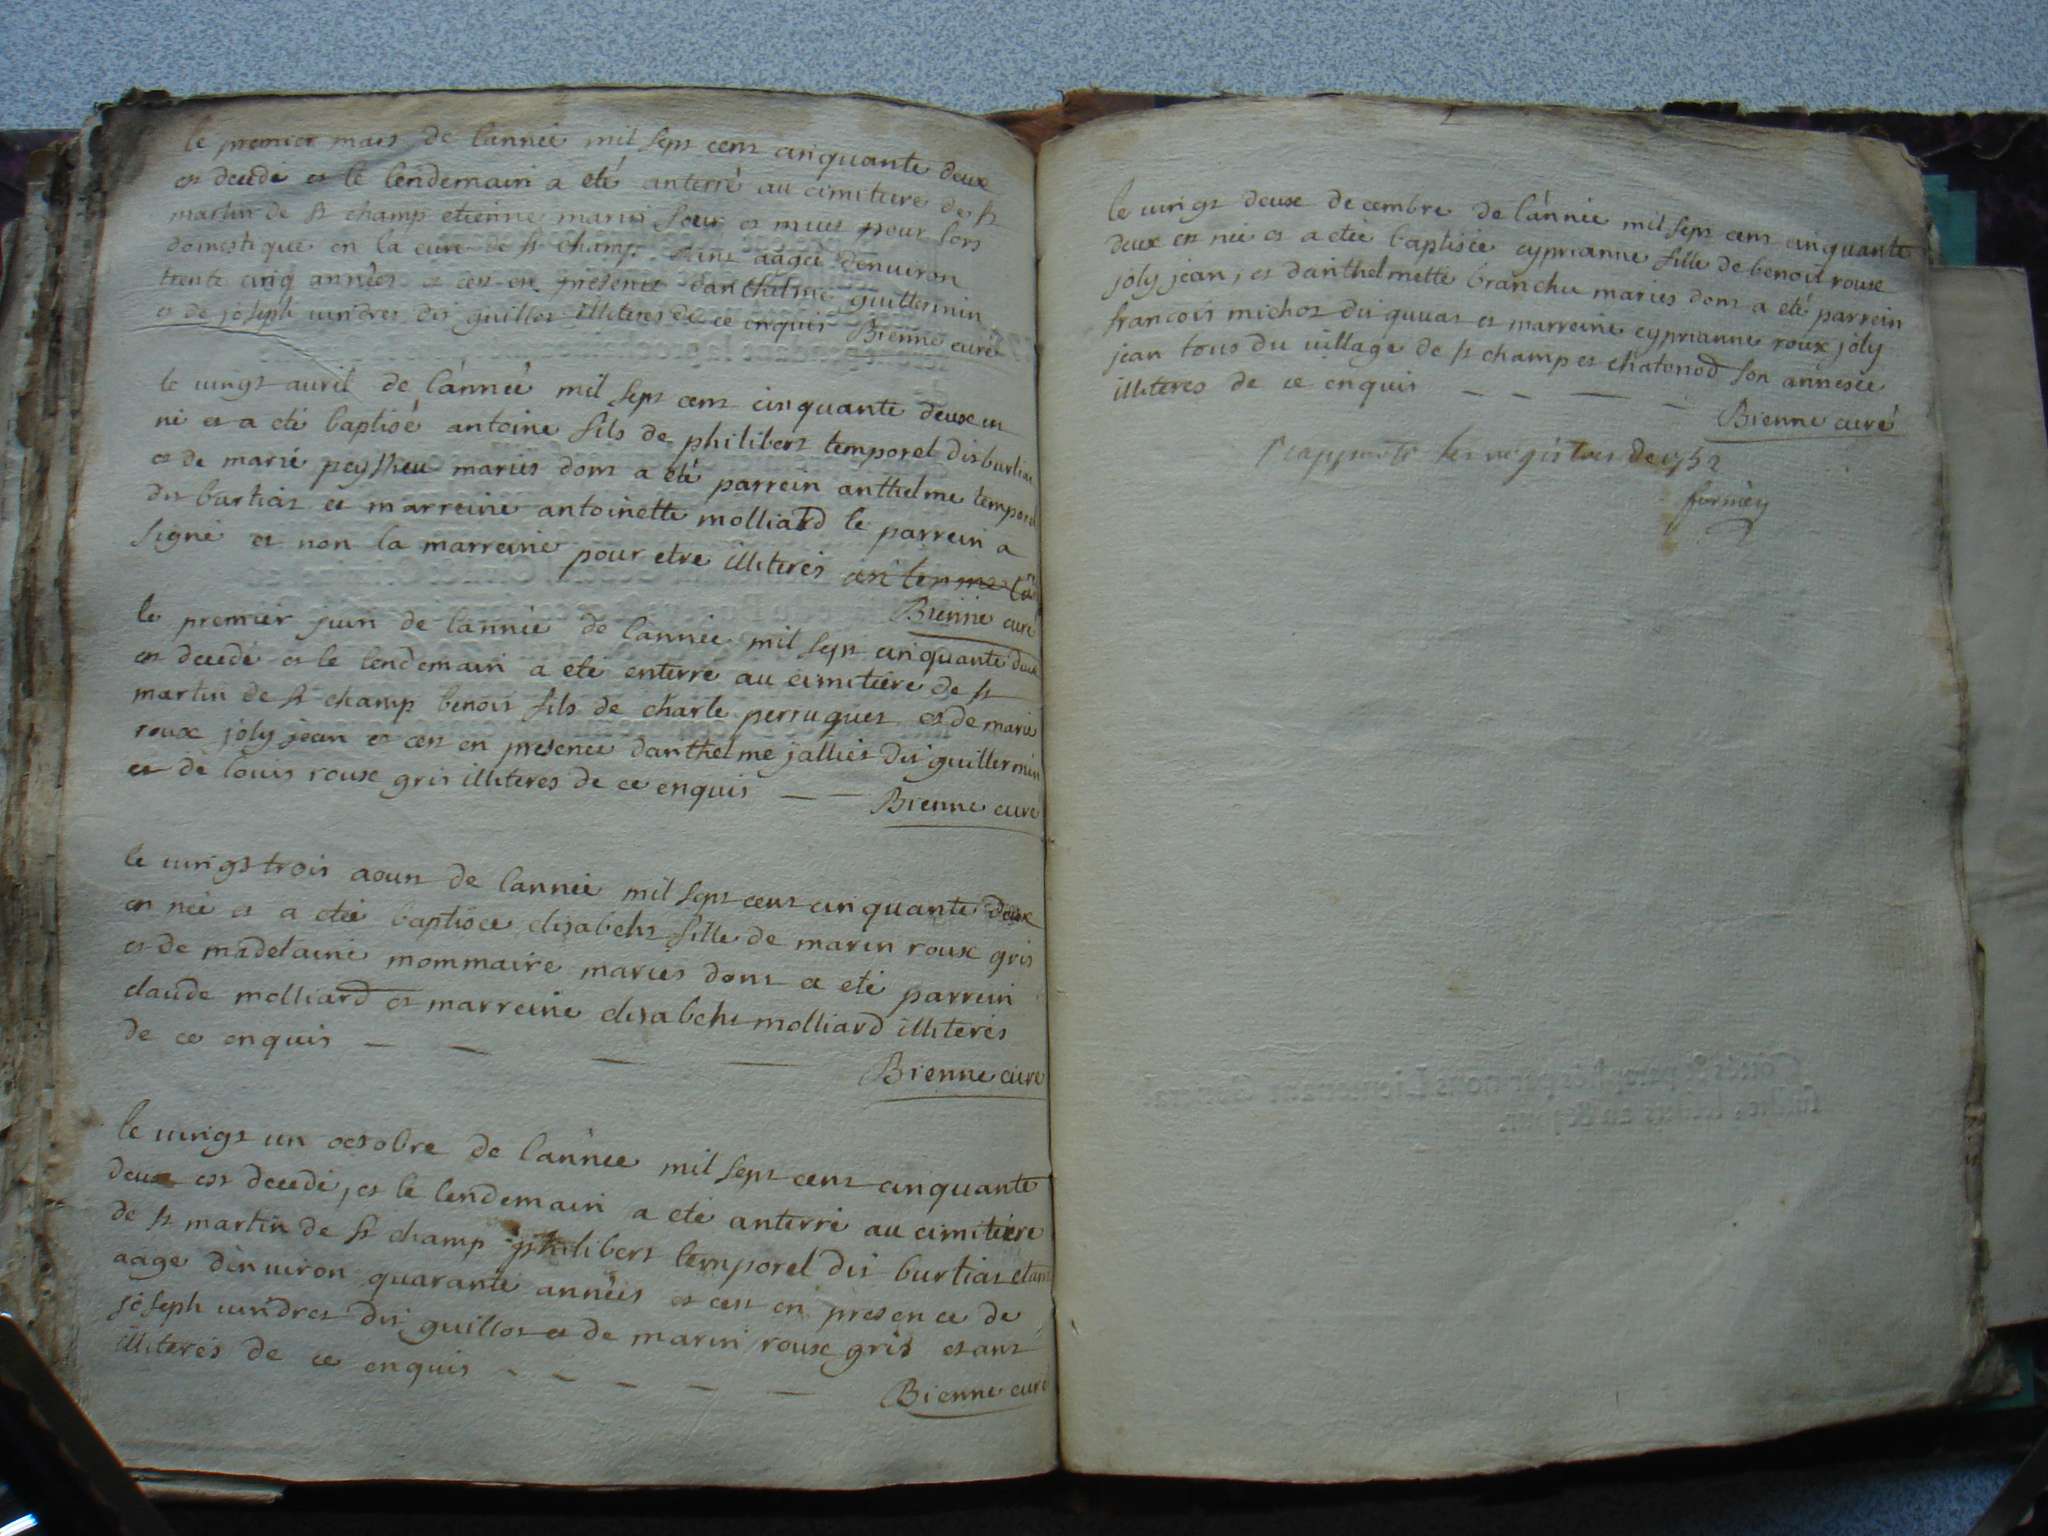 le premier mars de lannée mil sept cent cinquante deux
est decedé et le lendemain a eté anterré au cimitiere de st
martin de st champ etienne marin sour et muet pour lors
domestique en la cure de st champ etant aagé denuiron
trente cinq années et cest en presence danthelme guillermin
et de joseph uindret dit guillot illiteres de ce enquis Bienne curé
le uingt auril de lánneé mil sept cent cinquante deux est
né et a eté baptisé antoine fils de philibert temporel dit burtiat
et de marie peysseu mariés dont a eté parrein anthelme temporel
dit burtiat et marreine antoinette molliard le parrein a
signé et non la marreine pour etre illiterés
Bienne curé
le premier juin de lannée de lannée mil sept cinquante deux
est decedé et le lendemain a eté enterré au cimitiére de st
martin de st champ benoit fils de charle perruquet et de marie
roux joly jean et cest en presence danthelme jallier dit guillermin
et de louis roux gris illiteres de ce enquis Bienne curé
le uingt trois aoust de lannée mil sept cent cinquante deux
est née et a eteé baptisée elisabeht fille de marin roux gris
et de madelaine mommaire mariés dont a eté parrein
claude molliard et marreine elisabeht molliard illiterés
de ce enquis
Bienne curé
le uingt un octobre de lánnée mil sept cent cinquante
deux est decedé, et le lendemain a eté anterré au cimitiére
de st martin de st champ philibert temporel dit burtiat etant
aagé dénuiron quarante années et cest en presence de
joseph uindret dit guillot et de marin roux gris etant
illiterés de ce enquis
Bienne curé
le uingt deux decembre de lánnée mil sept cent cinquante
deux est née et a eteé baptisée cyprianne fille de benoit roux
joly jean, et danthelmette branchu mariés dont a eté parrein
francois michot dit quuat et marreine cyprianne roux joly
jean tous du uillage de st champ et chatonod son annexée
illiteres de ce enquis
Bienne curé
les registres de 1752